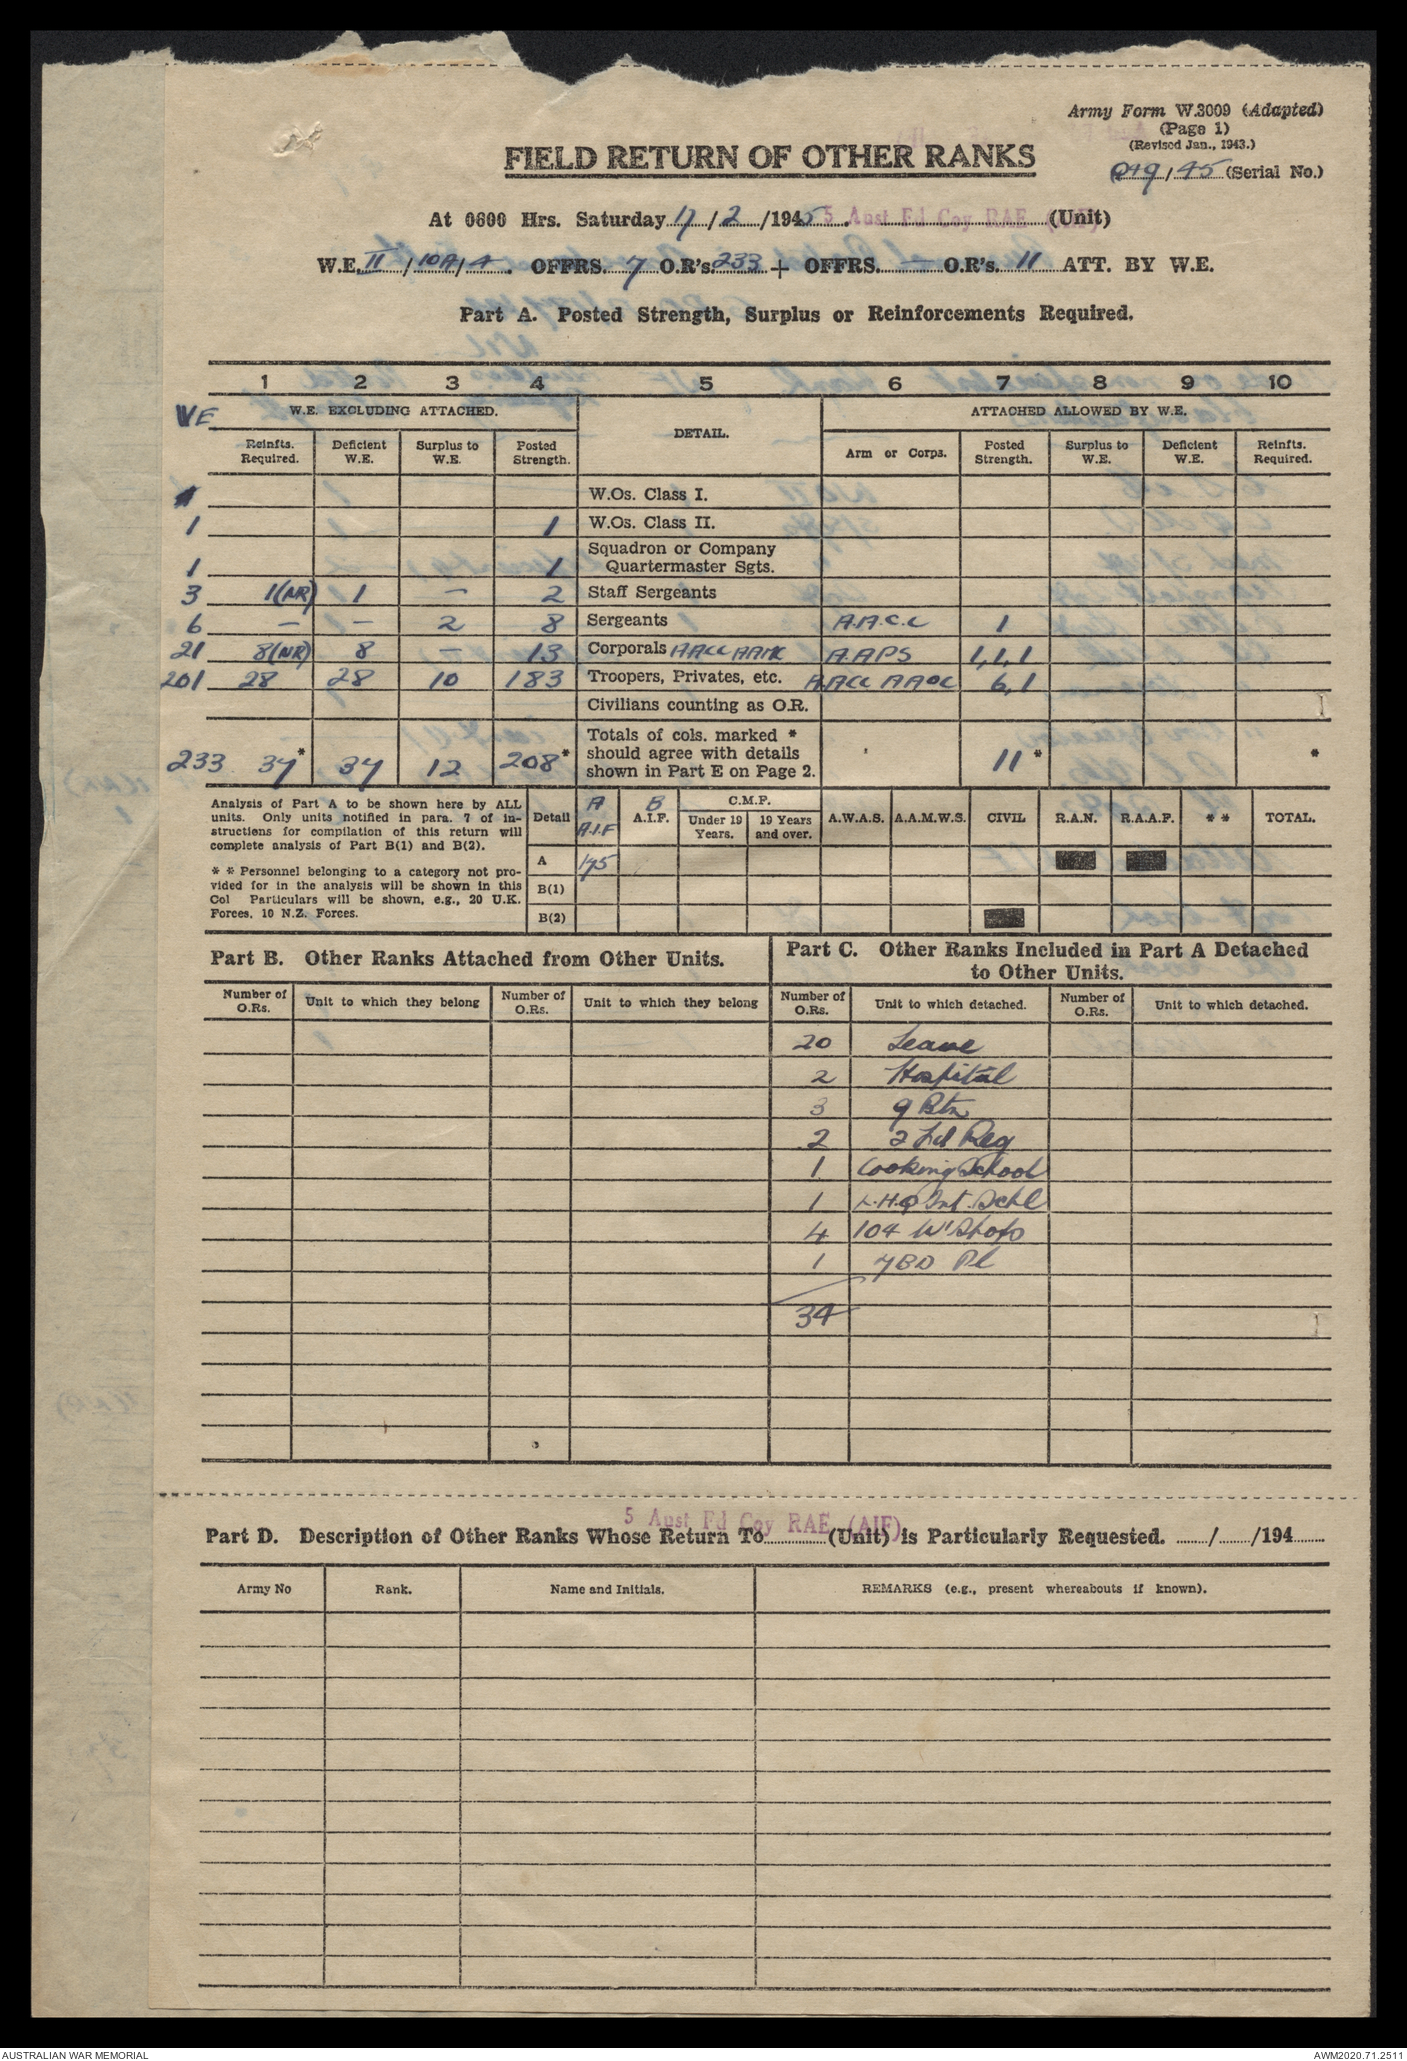 Army Form W.3009 (Adapted)
(Page 1)
(Revised Jan., 1943.)
FIELD RETURN OF OTHER RANKS
/45 (Serial No.)
At 0600 Hrs. Saturday 17/2/1945 5 Aust Fd Coy RAE (AIF) (Unit)
W.E. II/10A/4. OFFRS. 7 O.R's. 233 + OFFRS. — O.R's. 11 ATT. BY W.E.
Part A. Posted Strength, Surplus or Reinforcements Required.
1 2 3 4 5 6 7 8 9 10
WE W.E. EXCLUDING ATTACHED. DETAIL. ATTACHED ALLOWED BY W.E.
Reinfts. Required. Deficient W.E. Surplus to W.E. Posted Strength. Arm or Corps. Posted Strength. Surplus to W.E. Deficient W.E. Reinfts. Required.
W.Os. Class I.
1 1 W.Os. Class II.
1 1 Squadron or Company Quartermaster Sgts.
3 1(NR) 1 — 2 Staff Sergeants
6 — — 2 8 Sergeants A.A.C.C 1
21 8(NR) 8 — 13 Corporals AACC AAMC AAPS 1,1,1
201 28 28 10 183 Troopers, Privates, etc. AACC AAOC 6,1
Civilians counting as O.R.
233 37* 37 12 208* Totals of cols. marked * should agree with details shown in Part E on Page 2. 11* *
Analysis of Part A to be shown here by ALL
units. Only units notified in para. 7 of in-
structions for compilation of this return will
complete analysis of Part B(1) and B(2).
* * Personnel belonging to a category not pro-
vided for in the analysis will be shown in this
Col Particulars will be shown, e.g., 20 U.K.
Forces, 10 N.Z. Forces.
Detail A A.I.F B A.I.F. C.M.F. Under 19 Years. 19 Years and over. A.W.A.S. A.A.M.W.S. CIVIL R.A.N. R.A.A.F. * * TOTAL.
A 175
B(1)
B(2)
Part B. Other Ranks Attached from Other Units.
Number of O.Rs. Unit to which they belong Number of O.Rs. Unit to which they belong
Part C. Other Ranks Included in Part A Detached
to Other Units.
Number of O.Rs. Unit to which detached. Number of O.Rs. Unit to which detached.
20 Leave
2 Hospital
3 9 Btn
2 2 Fd Reg
1 Cooking School
1 L.H.Q Int. Schl
4 104 W'Shops
1 7BD Pl
34
5 Aust Fd Coy RAE (AIF)
Part D. Description of Other Ranks Whose Return To (Unit) is Particularly Requested. / /194
Army No Rank. Name and Initials. REMARKS (e.g., present whereabouts if known).
AUSTRALIAN WAR MEMORIAL
AWM2020.71.2511